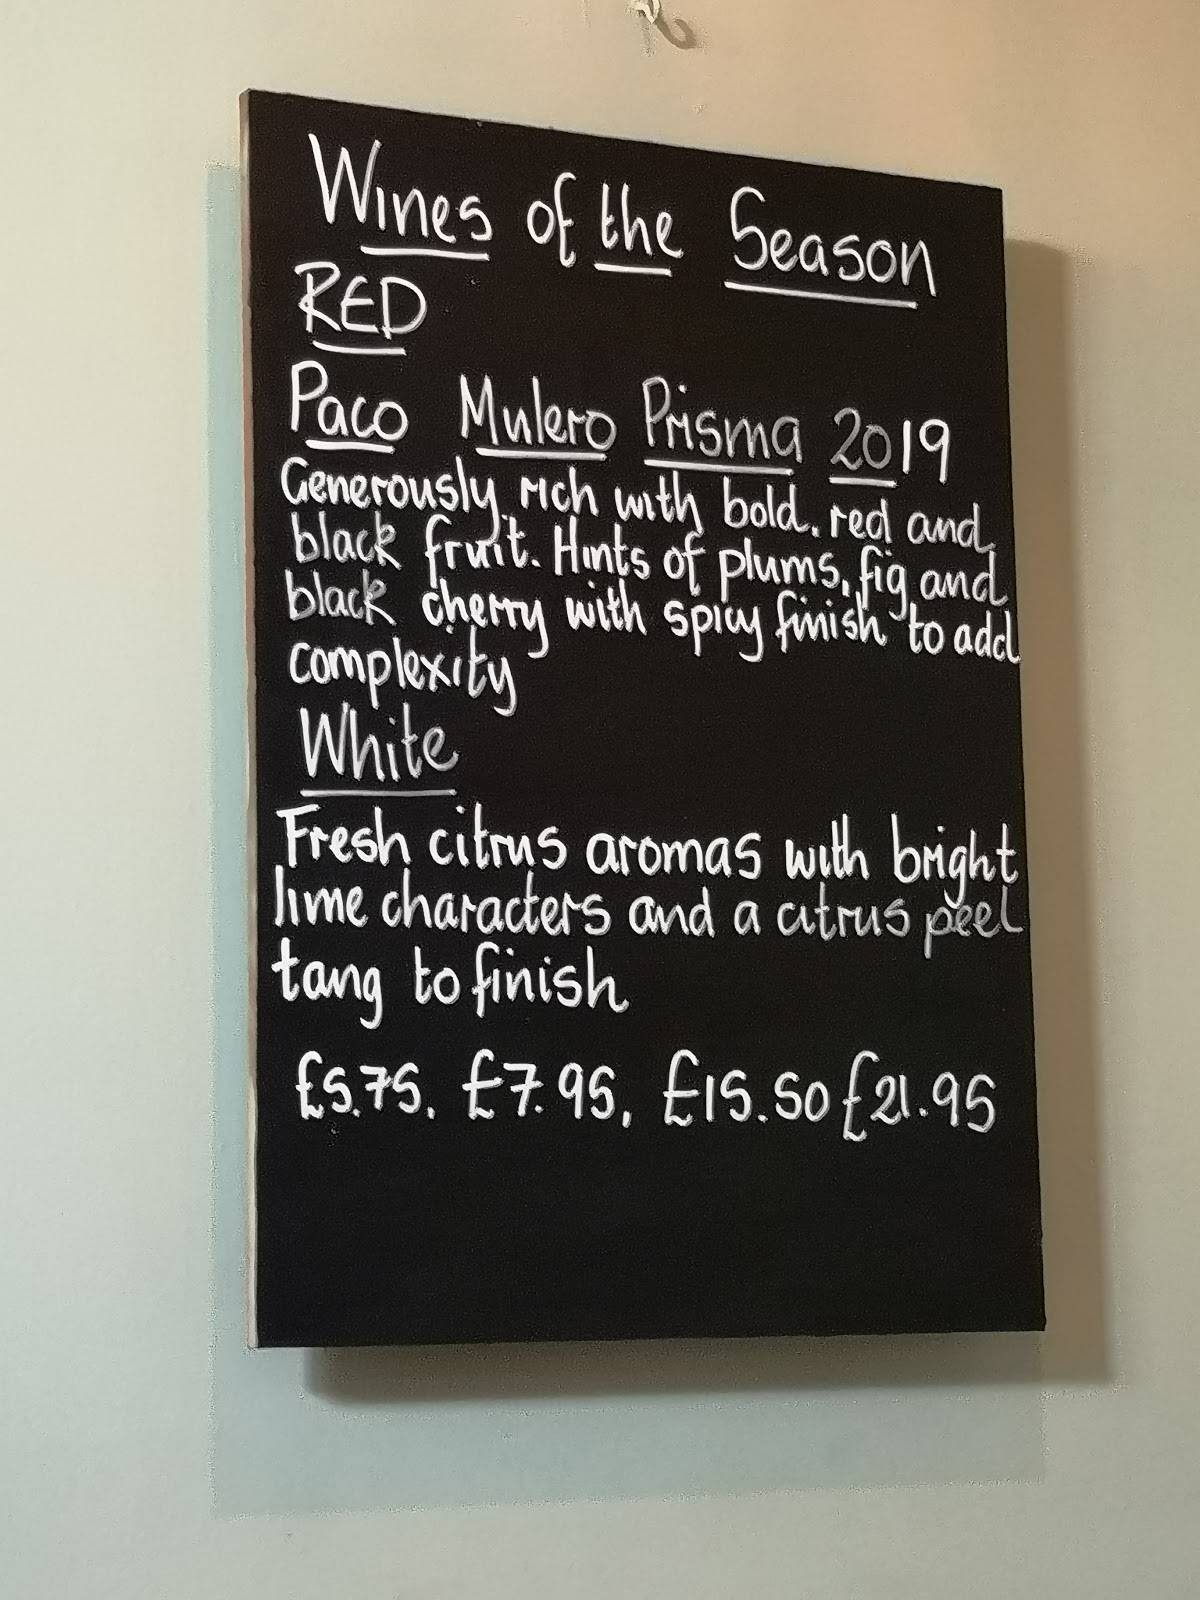 Wines of the Season
RED
Paco Mulero Prisma 2019
Generously rich with bold, red and
black fruit. Hints of plums, fig and
black cherry with spicy finish to add
complexity
White
Fresh citrus aromas with bright
lime characters and a citrus peel
tang to finish
£5.75, £7.95, £15.50 £21.95